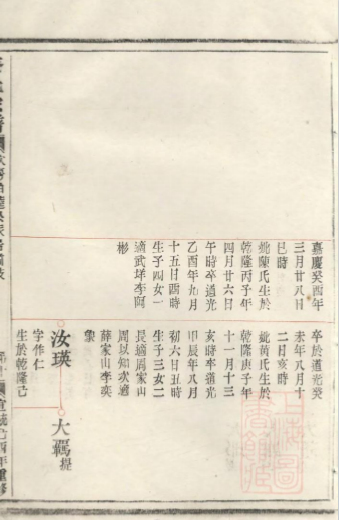 嘉慶癸酉年
三月廿八日
巳時
妣蘭氏生於
乾隆丙子年
四月廿六日
午時卒道光
乙酉年九月
十五日酉時
生子四女一
適武垟李阿
彬
卒於道光癸
未年八月十
二月亥時
妣黃氏生於
乾隆庚子年
十一月十三
亥時卒道光
甲辰年八月
初六日丑時
生子三女二
長適周家山
周以知次適
薛家山李奕
汝瑛
大羈
字作仁
生於乾隆己
宣統己酉年重修